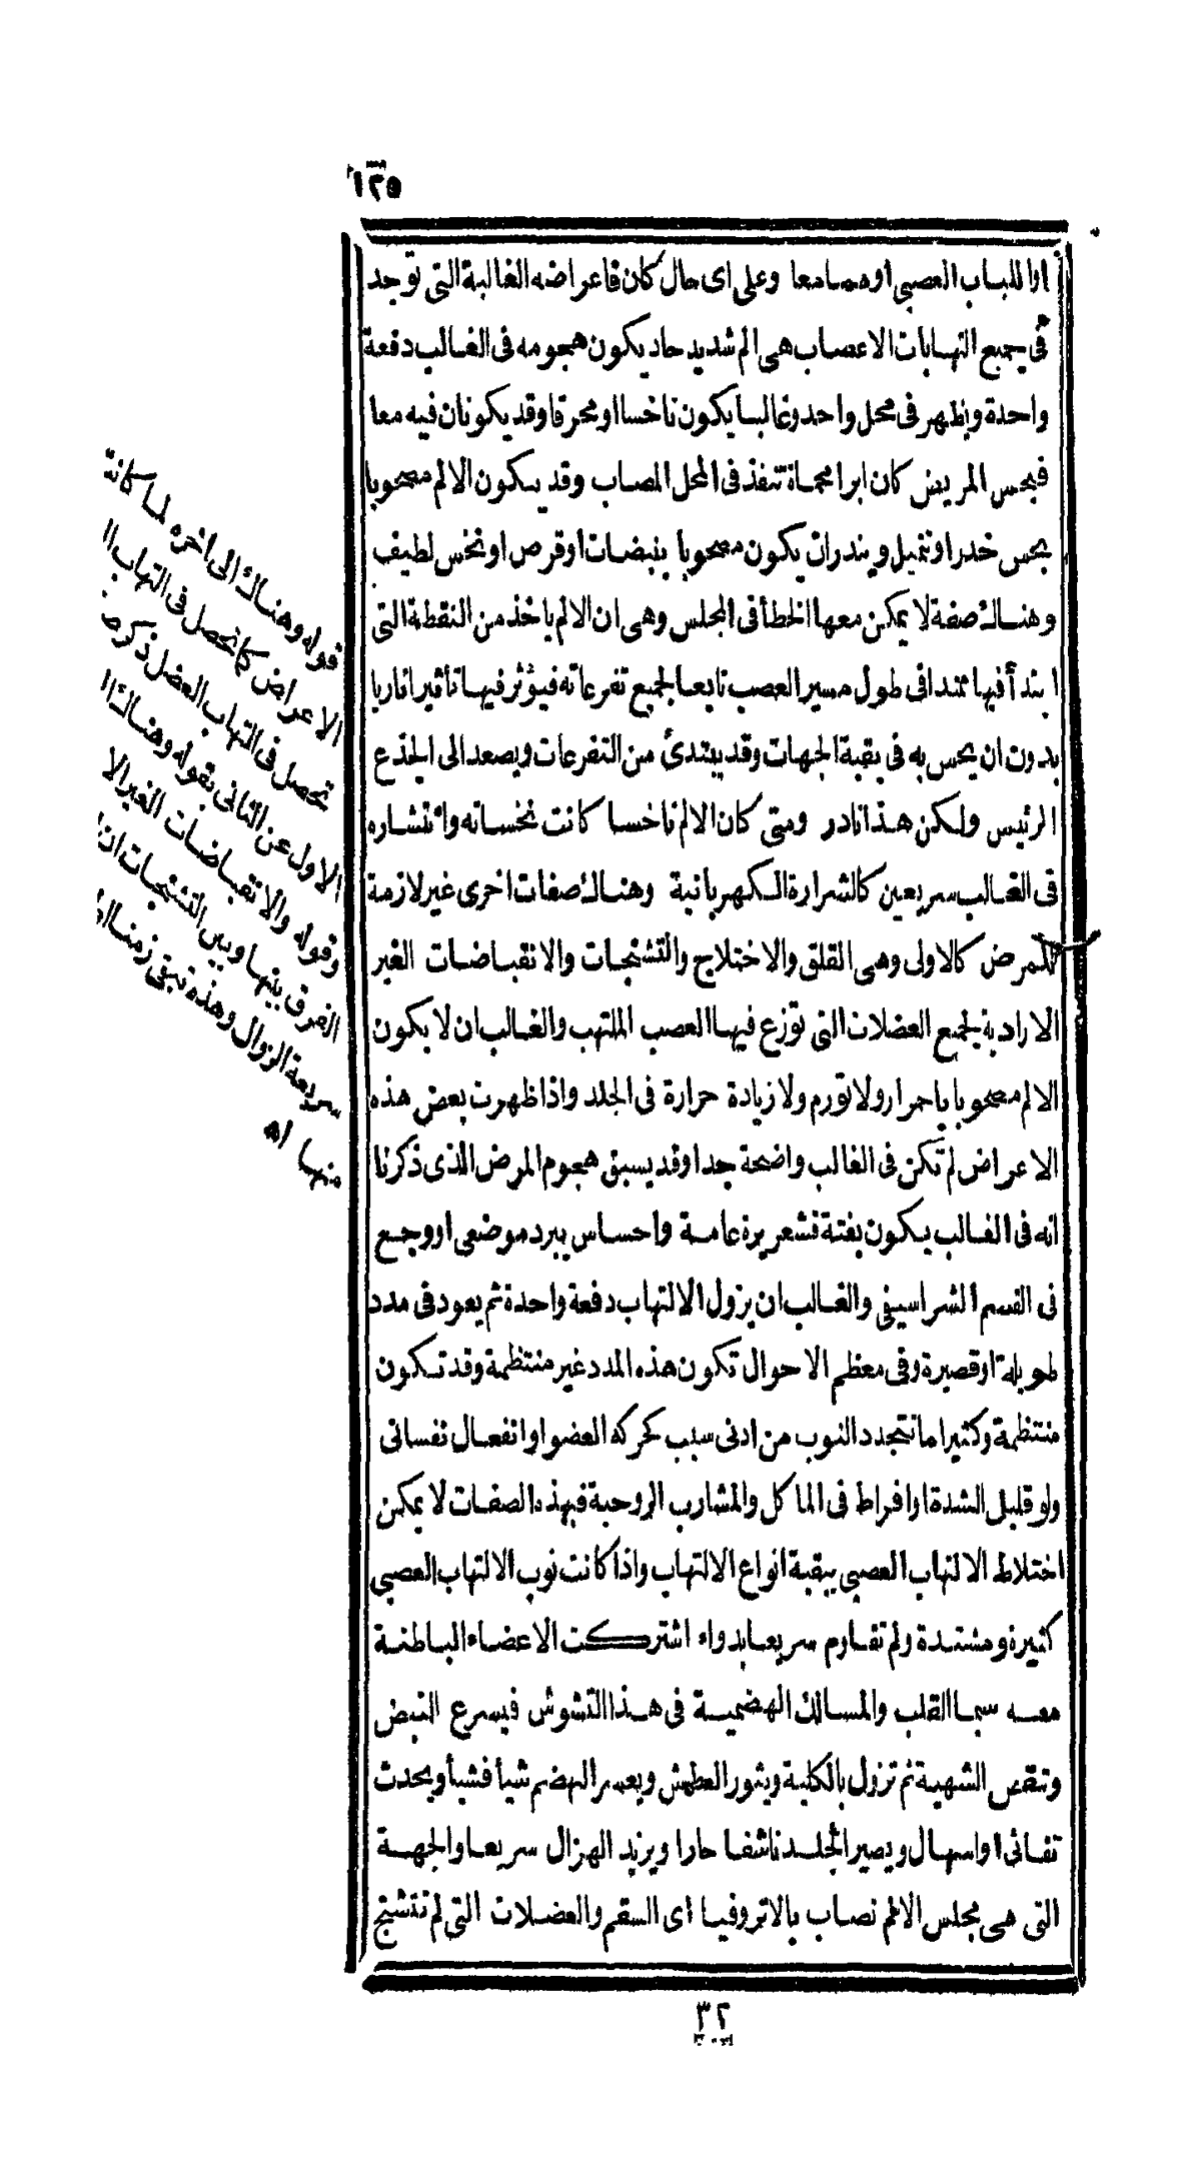 ١٢٥
او اللباب العصبى او همامعا وعلى اى حال كان فاعراضه الغالبة التى توجد
فى جميع التهابات الاعصاب هى الم شديد حاد يكون هجومه فى الغالب دفعة
واحدة ويظهر فى محل واحد وغالبا يكون ناخسا او محرقا وقد يكونان فيه معا
فيحس المريض كان ابرا محماة تنفذ فى المحل المصاب وقد يكون الالم مصحوبا
بحس خدر او تنميل ويندر ان يكون مصحوبا بنبضات او قرص او نخس لطيف
وهناك صفة لا يمكن معها الخطأ فى المجلس وهى ان الالم ياخذ من النقطة التى
ابتدأ فيها ممتدا فى طول مسير العصب تابعا لجميع تفرعاته فيؤثر فيها تأثيرا ناريا
بدون ان يحس به فى بقية الجهات وقد يبتدئ من التفرعات ويصعد الى الجذع
الرئيس ولكن هذا نادر ومتى كان الالم ناخسا كانت نخساته وانتشاره
فى الغالب سريعين كالشرارة الكهربائية وهناك صفات اخرى غير لازمة
للمرض كالاولى وهى القلق والاختلاج والتشنجات والانقباضات الغير
الارادية لجميع العضلات التى توزع فيها العصب الملتهب والغالب ان لا يكون
الالم مصحوبا باحمرار ولا تورم ولا زيادة حرارة فى الجلد واذا ظهرت بعض هذه
الاعراض لم تكن فى الغالب واضحة جدا وقد يسبق هجوم المرض الذى ذكرنا
انه فى الغالب يكون بغتة قشعريرة عامة واحساس ببرد موضعى او وجع
فى القسم الشراسيفى والغالب ان يزول الالتهاب دفعة واحدة ثم يعود فى مدد
طويلة او قصيرة وفى معظم الاحوال تكون هذه المدد غير منتظمة وقد تكون
منتظمة وكثيرا ما تتجدد النوب من ادنى سبب كحركة العضو او انفعال نفسانى
ولو قليل الشدة او افراط فى الماكل والمشارب الروحية فبهذه الصفات لا يمكن
اختلاط الالتهاب العصبى ببقية انواع الالتهاب واذا كانت نوب الالتهاب العصبى
كثيرة ومشتدة ولم تقاوم سريعا بدواء اشتركت الاعضاء الباطنة
معه سيما القلب والمسالك الهضمية فى هذا التشوش فيسرع النبض
وتنقص الشهية ثم تزول بالكلية ويثور العطش ويعسر الهضم شيأ فشيأ ويحدث
تفائى او اسهال ويصير الجلد ناشفا حارا ويزيد الهزال سريعا والجهة
التى هى مجلس الالم تصاب بالاتروفيا اى السقم والعضلات التى لم تتشنج
٣٢
قوله وهناك الى اخره لما كانت
الاعراض كما تحصل فى التهاب
تحصل فى التهاب العضل ذكر
الاول عن الثانى بقوله وهناك
وقوله والانقباضات الغير الا
الفرق بينها وبين التشنجات ان
سريعة الزوال وهذه تبقى زمنا
منها اه